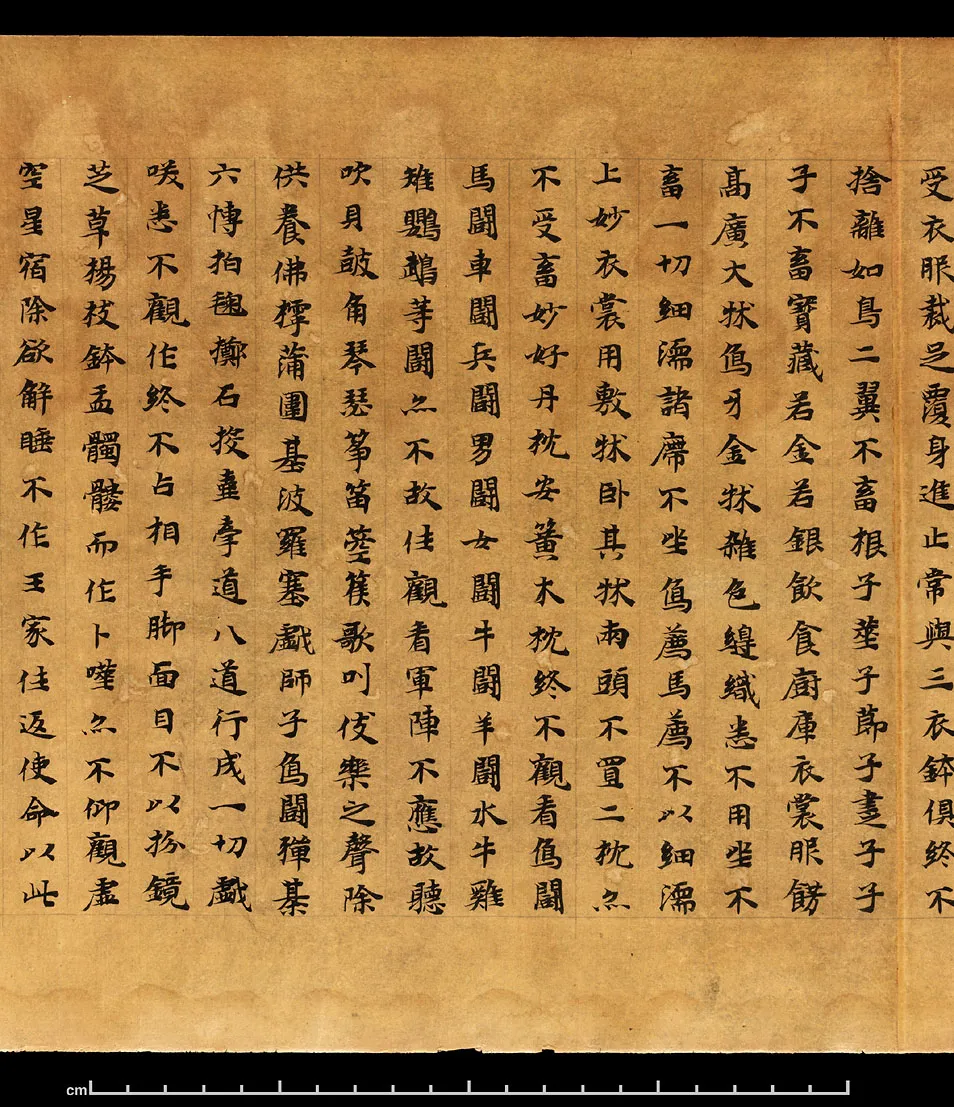 受衣服裁足覆身進止常與三衣鉢俱終不
捨離如鳥二翼不畜根子莖子莭子㚇子子
子不畜寶藏若金若銀飲食廚庫衣裳服餝
髙廣大牀爲牙金牀雜色綖織悉不用坐不
畜一切細濡諸席不坐爲薦馬薦不以細濡
上妙衣裳用敷牀卧其牀兩頭不置二枕亦
不受畜妙好丹枕安簧木枕終不觀看爲鬪
馬鬪車鬪兵鬪男鬪女鬪牛鬪羊鬪水牛雞
雉鸚鵡等鬪亦不故往觀看軍陣不應故聽
吹貝皷角琴瑟筝笛箜篌歌叫伎樂之聲除
供養佛摴蒲圍棊波羅塞戲師子爲鬪彈棊
六愽拍毱擲石投壺牽道八道行成一切戲
咲悉不觀作終不占相手脚面目不以扮鏡
芝草楊枝鉢盂髑髏而作卜噬亦不仰觀虛
空星宿除欲解睡不作王家往返使命以此
cm